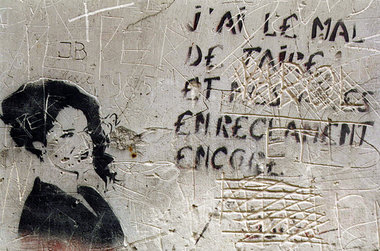 JB
J'AI LE MAL
DE TAIRE
ET
EN RECLAMENT
ENCORE